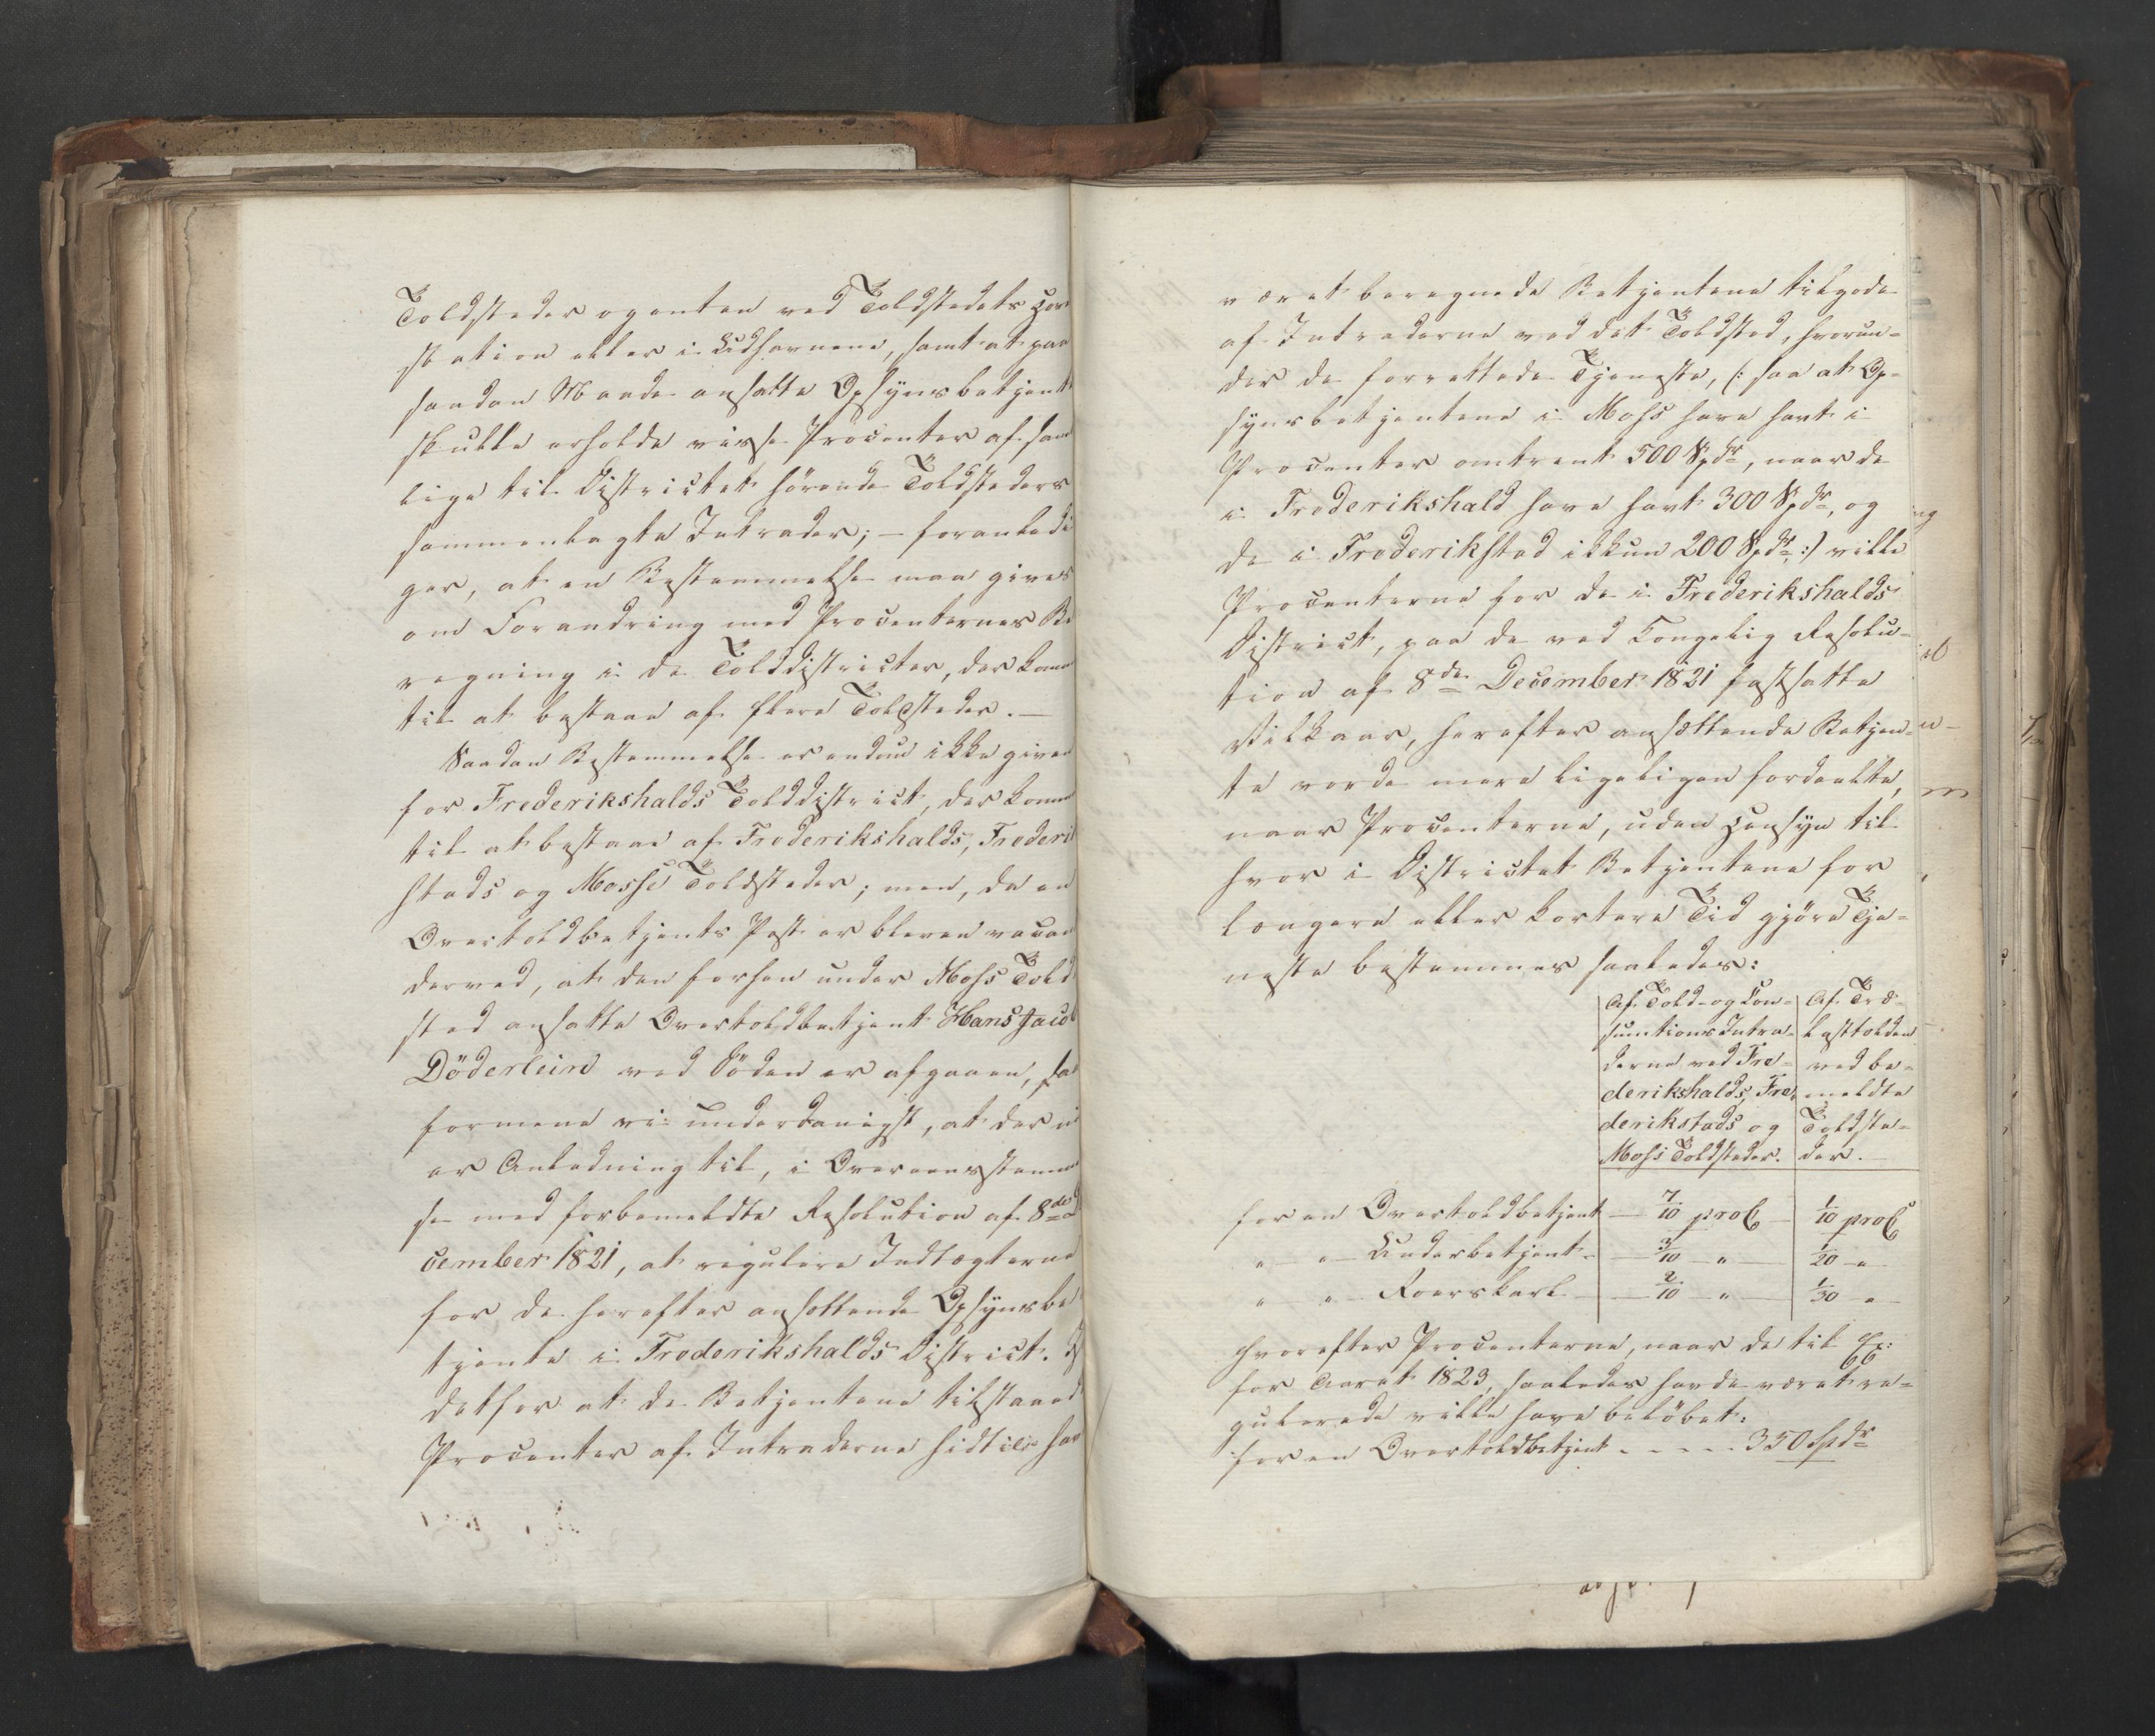 Toldsteder og enten ved Toldstedets Hoved
station eller i Udhavnene, samt at paa
saadan Maade ansatte Opsynsbetjent
skulle erholde visse Procenter af sam
lige til Districtet hörende Toldsteders
sammenlagte Intrader; – foranledi
ger, at en Bestemmelse maa gives
om Forandring med Procenternes Be
regning i de Tolddistricter, der komme
til at bestaae af flere Toldsteder. –
Saadan Bestemmelse er endnu ikke given
for Frederikshalds Tolddistrict, der komme
til at bestaae af Frederikshalds, Frederik
stads og Mosse Toldsteder; men, da en
Overtoldbetjents Post er bleven vacant
derved, at den forhen under Moss Told
sted ansatte Overtoldbetjent Hans Jacob
Döderlein ved Döden er afgaaen, saa
formene vi underdanigst, at der nu
er Anledning til, i Overeensstemmel
se med forbemeldte Resolution af 8de De
cember 1821, at regulere Indtægterne
for de herefter ansættende Opsynsbe
tjente i Frederikshalds District. I
detfor at de Betjentene tilstaaede
Procenter af Intraderne hidtil have
været beregnede Betjentene tilgode
af Intraderne ved det Toldsted, hvorun-
der de forrettede Tjeneste, (: saa at Op-
synsbetjentene i Moss have havt i
Procenter omtrent 500 Spdr, naar de
i Frederikshald have havt 300 Spdr, og
de i Frederikstad ikkun 200 Spdr :) ville
Procenterne for de i Frederikshalds
District, paa de ved Kongelig Resolu-
tion af 8de December 1821 fastsatte
Vilkaar, herefter ansættende Betjen-
te vorde mere ligeligen fordeelte,
naar Procenterne, uden Hensyn til
hvor i Districtet Betjentene for
længere eller kortere Tid gjöre Tje-
neste bestemmes saaledes:
Af Told- og Con- | Af Træ-
sumtions Intra- | lasttolden
derne ved Fre- | ved be-
derikshalds, Fre- | meldte
derikstads og | Toldste-
Moss Toldsteder. | der.
for en Overtoldbetjent – 7/10 proC – | 1/10 proC
" " Underbetjent – 3/10 " – | 1/20 "
" " Roerskarl – 2/10 " – | 1/30 "
hvorefter Procenterne, naar de til Ex:
for Aaret 1823, saaledes havde været re-
gulerede ville have belöbet:
for en Overtoldbetjent - - - - - 350 Spdr